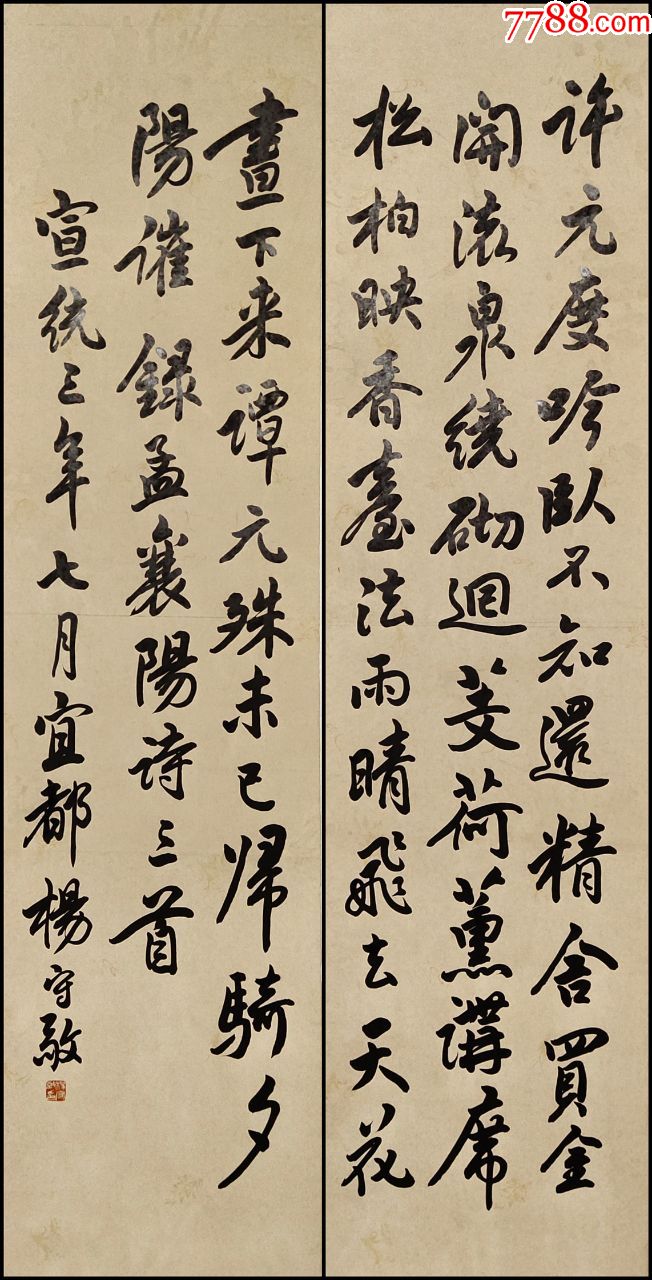 7788.com
许元度吟臥不知還精舍買金
開流泉繞砌迴芰荷薰講席
松柏映香臺法雨晴飛去天花
晝下来譚元殊未已帰騎夕
陽催 録孟襄陽诗三首
宣統三年七月宜都楊守敬